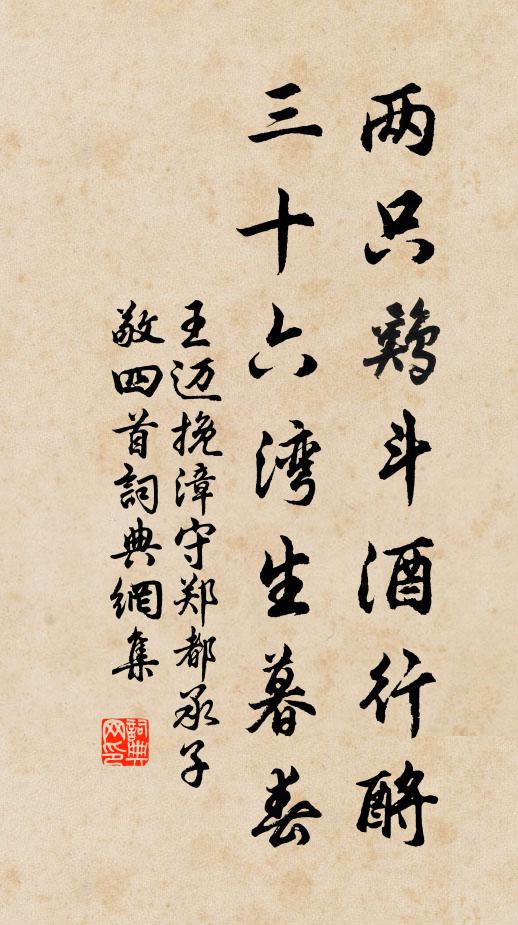 两只鷄斗酒行酹
三十六湾生暮春
王迈挽漳守郑都承子
敬四首詞典網集
詞典
网印